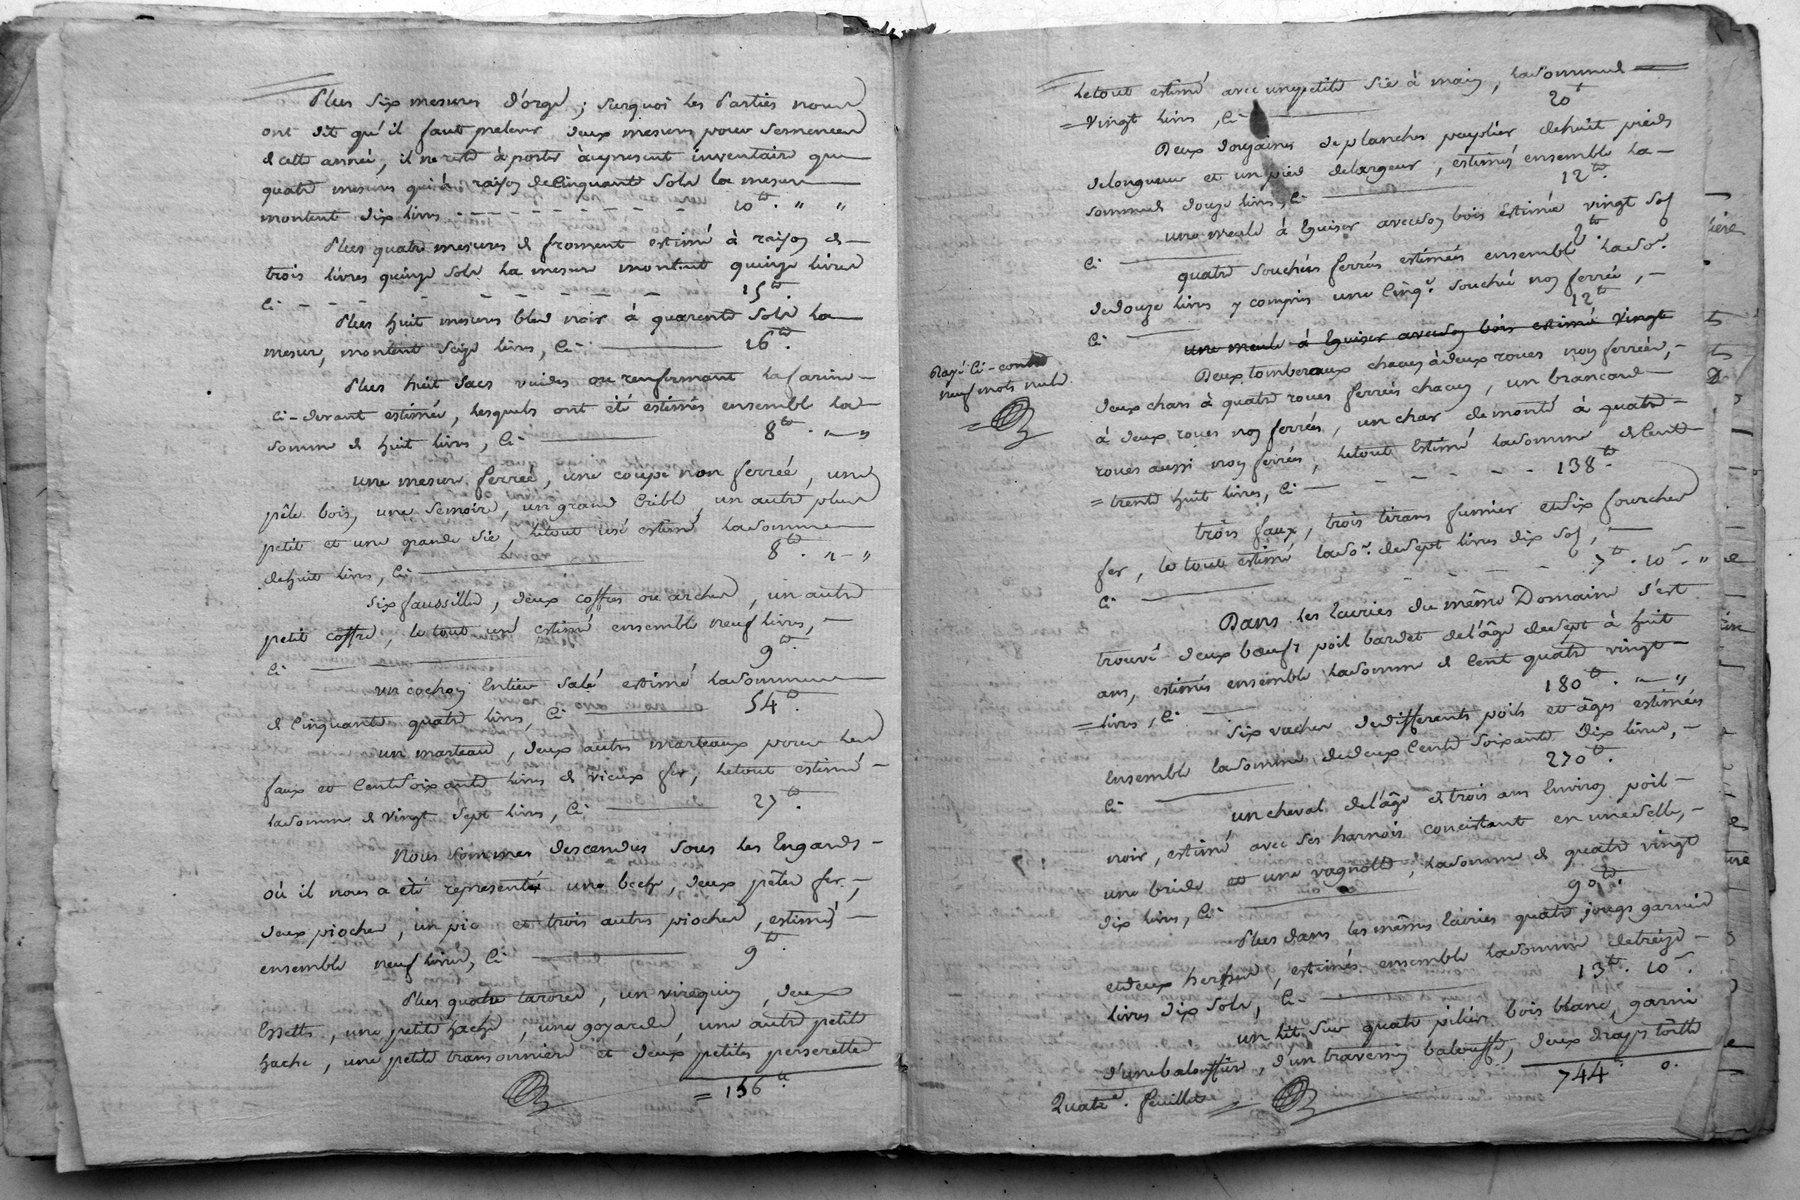 Plus six mesures d'orge ; surquoi les Parties nous
ont dit qu'il faut prelever deux mesures pour semences
de cette année, il ne reste à porter au present inventaire que
quatre mesures qui à raison de Cinquante Sols la mesure
montent dix livres - - - - - - - - 10tt. " "
Plus quatre mesures de froment estimé à raison de
trois livres quinze sols la mesure montent quinze livres
Ci - - - - - - - - 15tt.
Plus huit mesures bled noir à quarente Sols la
mesure, montent Seize livres, Ci 16tt.
Plus huit sacs vuides ou renfermant la farine
Ci-devant estimée, lesquels ont été estimés ensemble la
Somme de huit livres, Ci 8tt. " "
une mesure ferrée, une coupe non ferrée, une
pêle bois, une Semoire, un grand Crible, un autre plus
petit et une grande Sie, le tout usé estimé la Somme
de huit livres, Ci 8tt. " "
Six faussilles, deux coffres ou arches, un autre
petit coffre, le tout usé estimé ensemble neuf livres,
Ci 9tt.
un cochon Entier Salé estimé la Somme
de Cinquante quatre livres, Ci 54tt.
un marteau, deux autres marteaux pour les
faux et Cent Soixante livres de vieux fer, le tout estimé
la Somme de vingt Sept livres, Ci 27tt.
Nous Sommes descendus Sous les Engards
où il nous a été representé une beche, deux pêles fer,
deux pioches, un pic et trois autres pioches, estimés
ensemble neuf livres, Ci 9tt.
Plus quatre tarores, un viroquin, deux
Essetts, une petite hache, une goyarde, une autre petite
hache, une petite et deux petites
= 156tt.
le tout estimé avec une petite Sie à main, la Somme de
= Vingt livres, Ci 20tt
Deux douzaines de planches peuplier de huit pieds
de longueur et un pied de largeur, estimés ensemble la
Somme de douze livres, Ci 12tt.
une meule à Eguiser avec son bois Estimée vingt Sols
Ci tt.
quatre ferrés estimées ensemble la So.e
de douze livres y compris une Cinq.e non ferrée,
Ci 12tt
une meule à Eguiser avec son bois estimé vingt
Rayé Ci-contre
neuf mots nuls
Deux tombereaux chacun à deux roues non ferrées,
deux chars à quatre roues ferrés chacun, un brancard
à deux roues non ferrées, un char demonté à quatre
roues aussi non ferrées, le tout Estimé la Somme de Cent
= trente huit livres, Ci - - - - - 138tt.
trois faux, trois tirans fumier et Six fourches
fer, le tout estimé la So.e de Sept livres dix Sols,
Ci - - - - 7tt. 10s. "
Dans les Ecuries du même Domaine s'est
trouvé deux bœufs poil bardet de l'âge de Sept à huit
ans, estimés ensemble la Somme de Cent quatre vingt
= livres, Ci 180tt. " "
Six vaches de differents poils et âges estimées
Ensemble la Somme de deux Cents Soixante Dix livres,
Ci 270tt.
un cheval de l'âge de trois ans Environ poil
noir, estimé avec ses harnois concistant en une Selle,
une bride et une vagnolle, la Somme de quatre vingt
dix livres, Ci 90tt.
Plus dans les mêmes Ecuries quatre jougs garnis
et deux herses, estimés ensemble la Somme de treize
livres dix Sols, Ci 13tt. 10s.
un lit Sur quatre piliers bois blanc, garni
d'une balouffière, d'un traversin balouffe, deux draps toille
744. 0.
Quatr.e feuillet